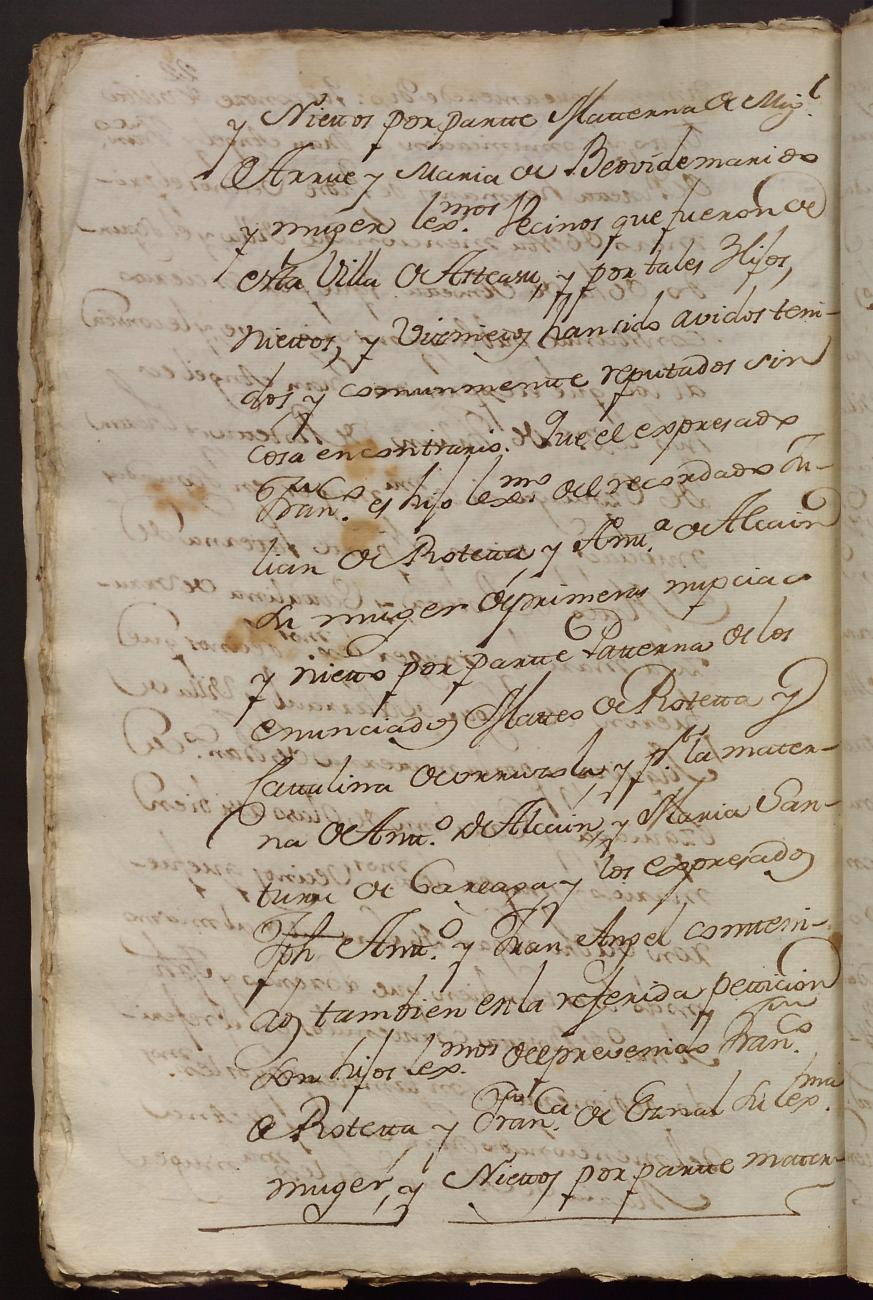 y Niettos por partte Matterna de Mig.l
de Arrue y Maria de Beovide marido
y muger lex.mos Vecinos que fueron de
esta Villa de Asteasu, y por tales Hijos,
Niettos, y Viznietos han sido avidos teni-
dos y comunmente reputados sin
cosa en contrario. Que el expresado
Fran.co es hijo lex.mo del recordado Ju-
lian de Rotetta y Antt.a de Alcain
su muger de primeras nupcias
y nietto por partte Patterna de los
enunciados Matteo de Rotetta y
Cattalina de Orruzola, y p.r la mater-
na de Antt.o de Alcain, y Maria San-
turu de y los expresados
Jph Antt.o y Juan Angel conteni-
dos tambien en la referida petticion
son hijos lex.mos del prevenido Fran.co
de Rotetta y Fran.ca de Eznal su lex.ma
muger, y Niettos por partte mater-